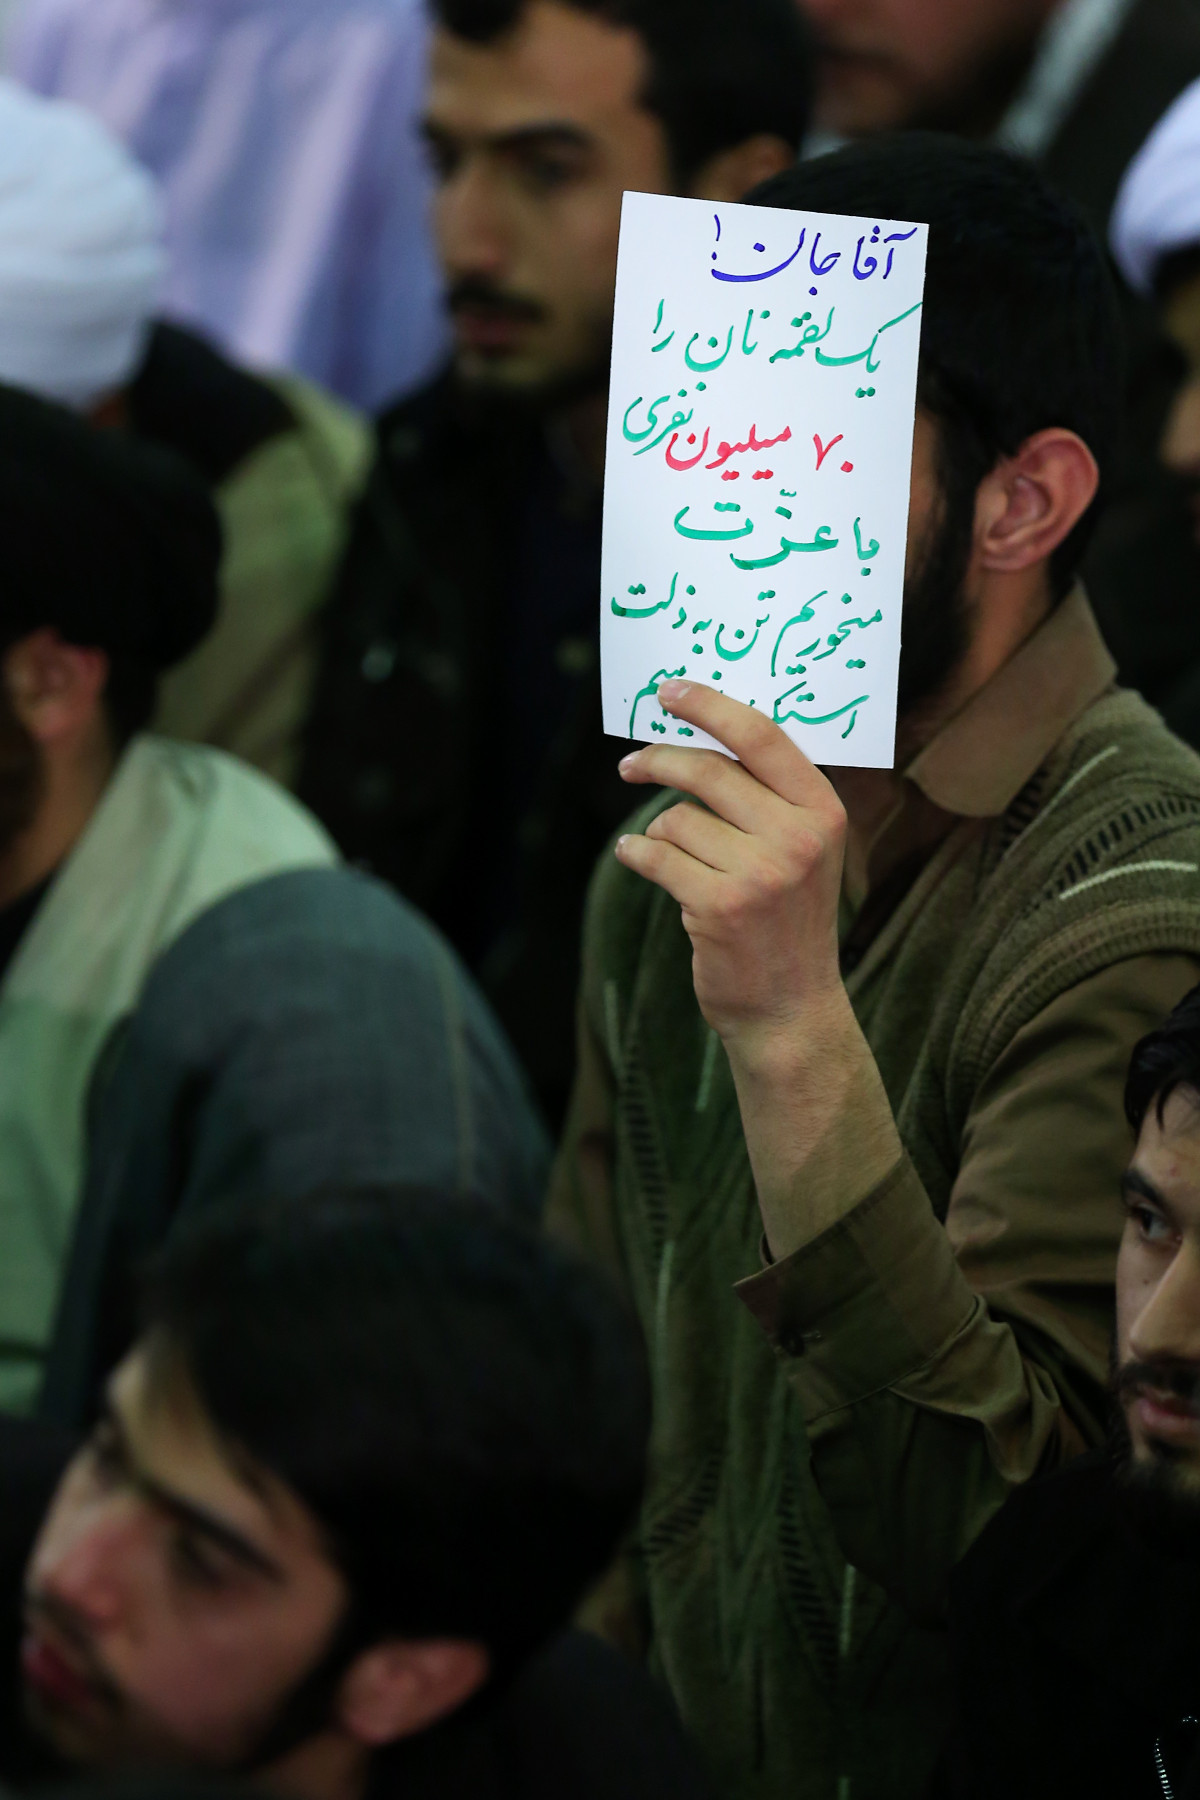 آقا جان!
یک لقمه نان را
۷۰ میلیون نفری
با عزّت
میخوریم تن به ذلت